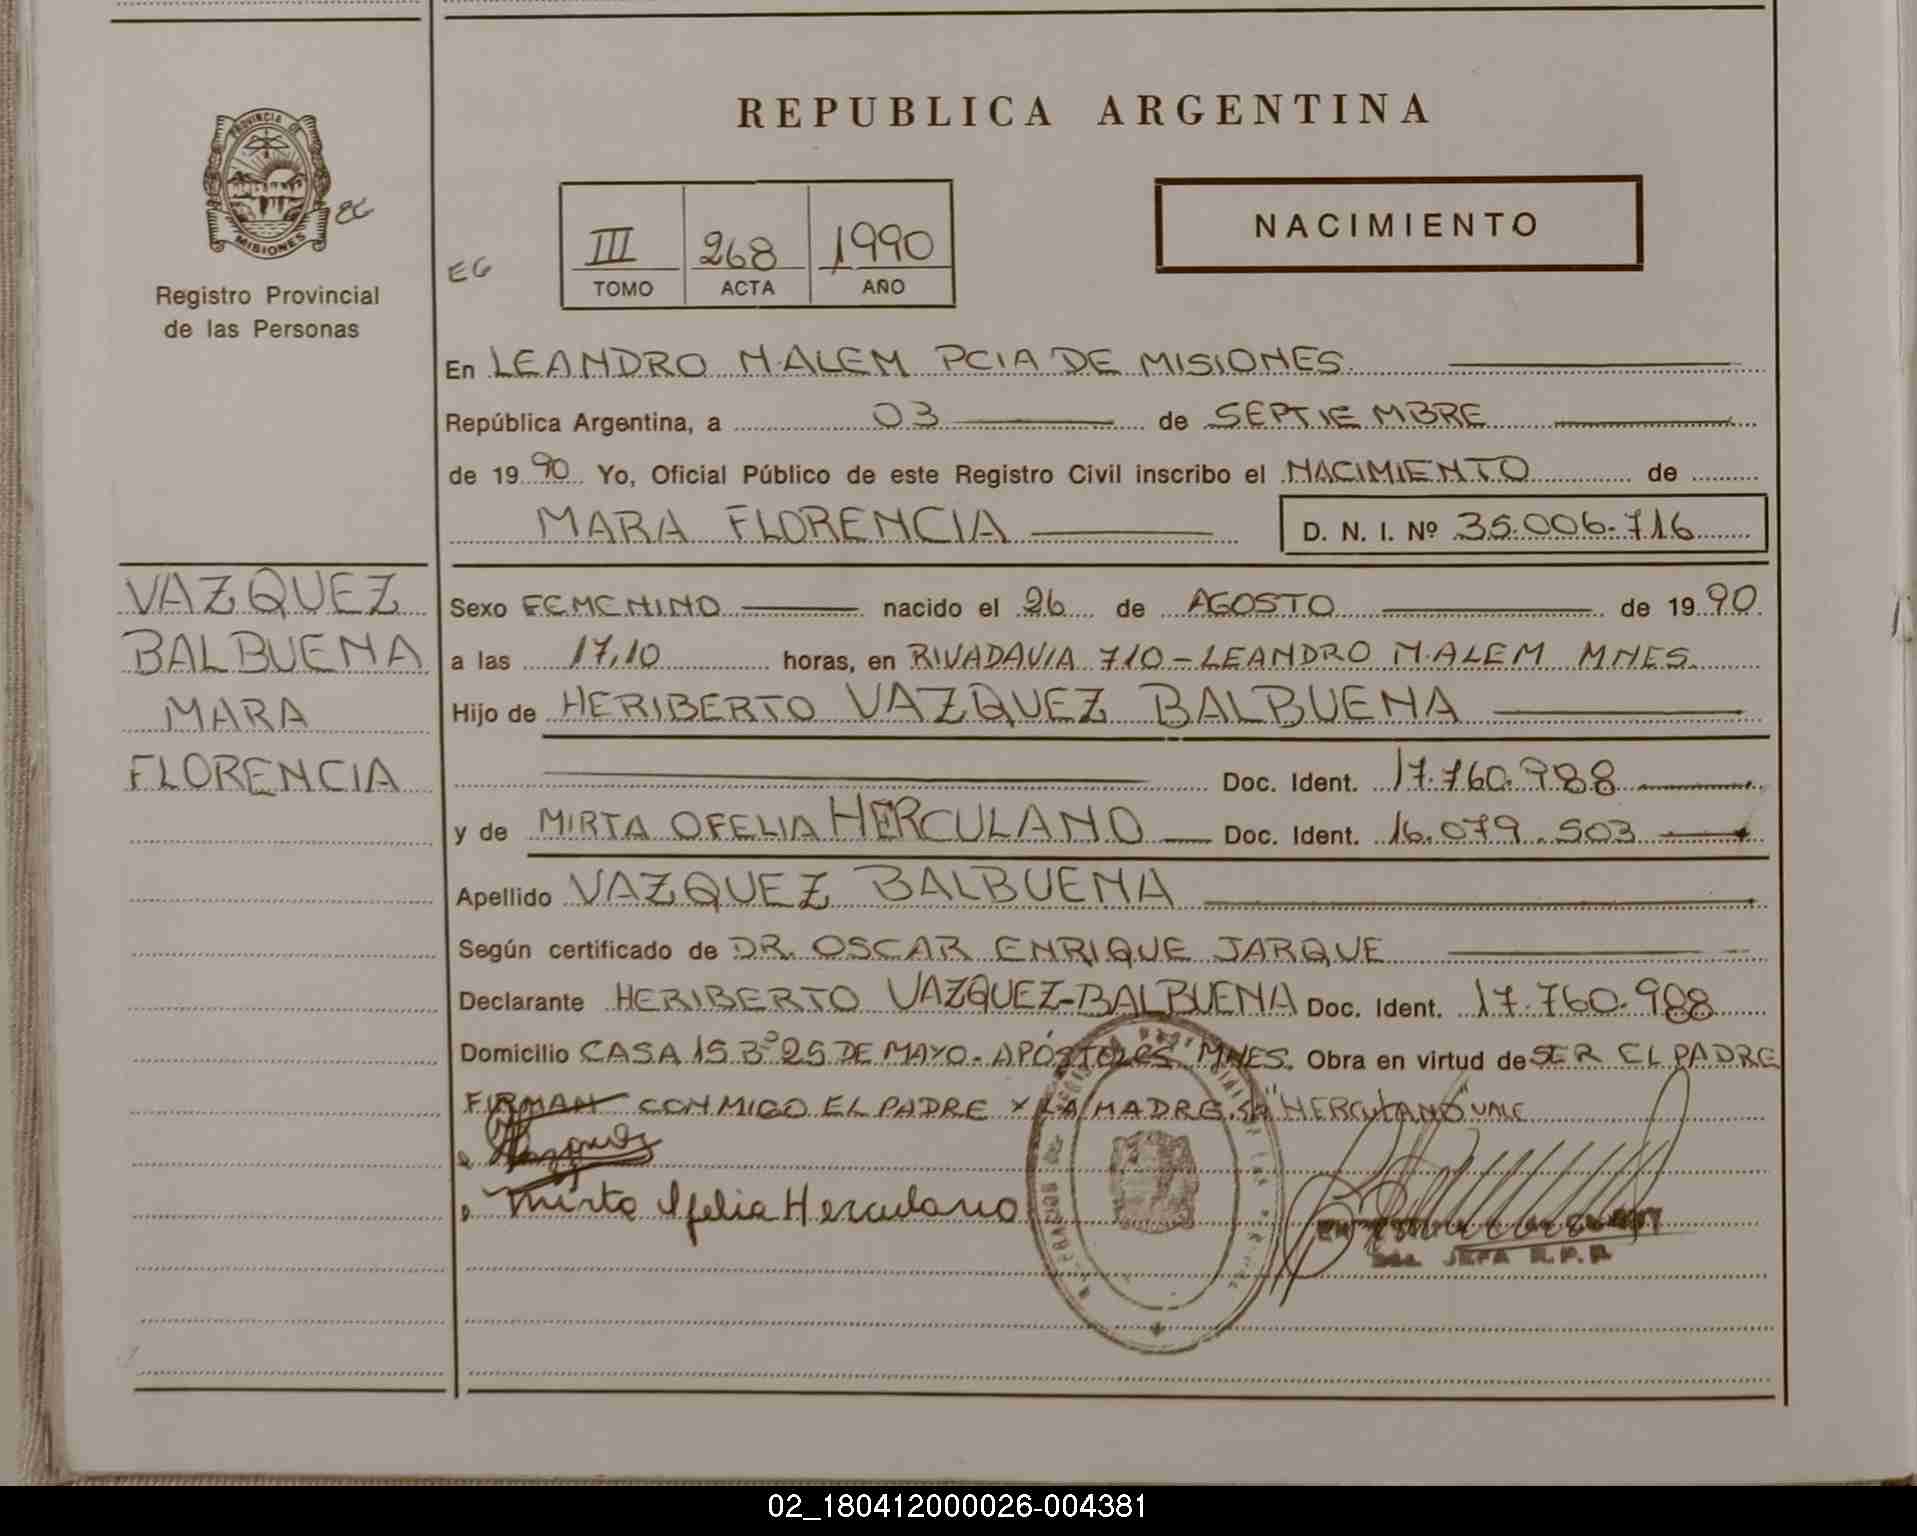 PROVINCIA DE
MISIONES
EG
Registro Provincial
de las Personas
VAZQUEZ
BALBUENA
MARA
FLORENCIA
REPUBLICA ARGENTINA
EG
III 268 1990
TOMO ACTA AÑO
NACIMIENTO
En LEANDRO N. ALEM PCIA DE MISIONES
República Argentina, a 03 de SEPTIEMBRE
de 19 90 Yo, Oficial Público de este Registro Civil inscribo el NACIMIENTO de
MARA FLORENCIA D. N. I. Nº 35.006.716
Sexo FEMENINO nacido el 26 de AGOSTO de 19 90
a las 17,10 horas, en RIVADAVIA 710 - LEANDRO N. ALEM MNES.
Hijo de HERIBERTO VAZQUEZ BALBUENA
Doc. Ident. 17.760.988
y de MIRTA OFELIA HERCULANO Doc. Ident. 16.079.503
Apellido VAZQUEZ BALBUENA
Según certificado de DR. OSCAR ENRIQUE JARQUE
Declarante HERIBERTO VAZQUEZ-BALBUENA Doc. Ident. 17.760.988
Domicilio CASA 15 Bº 25 DE MAYO. APÓSTOLES MNES. Obra en virtud de SER EL PADRE
FIRMAN CONMIGO EL PADRE Y LA MADRE. "HERCULANO" VALE
Vazquez
Mirta Ofelia Herculano
JEFA R.P.P.
02_180412000026-004381